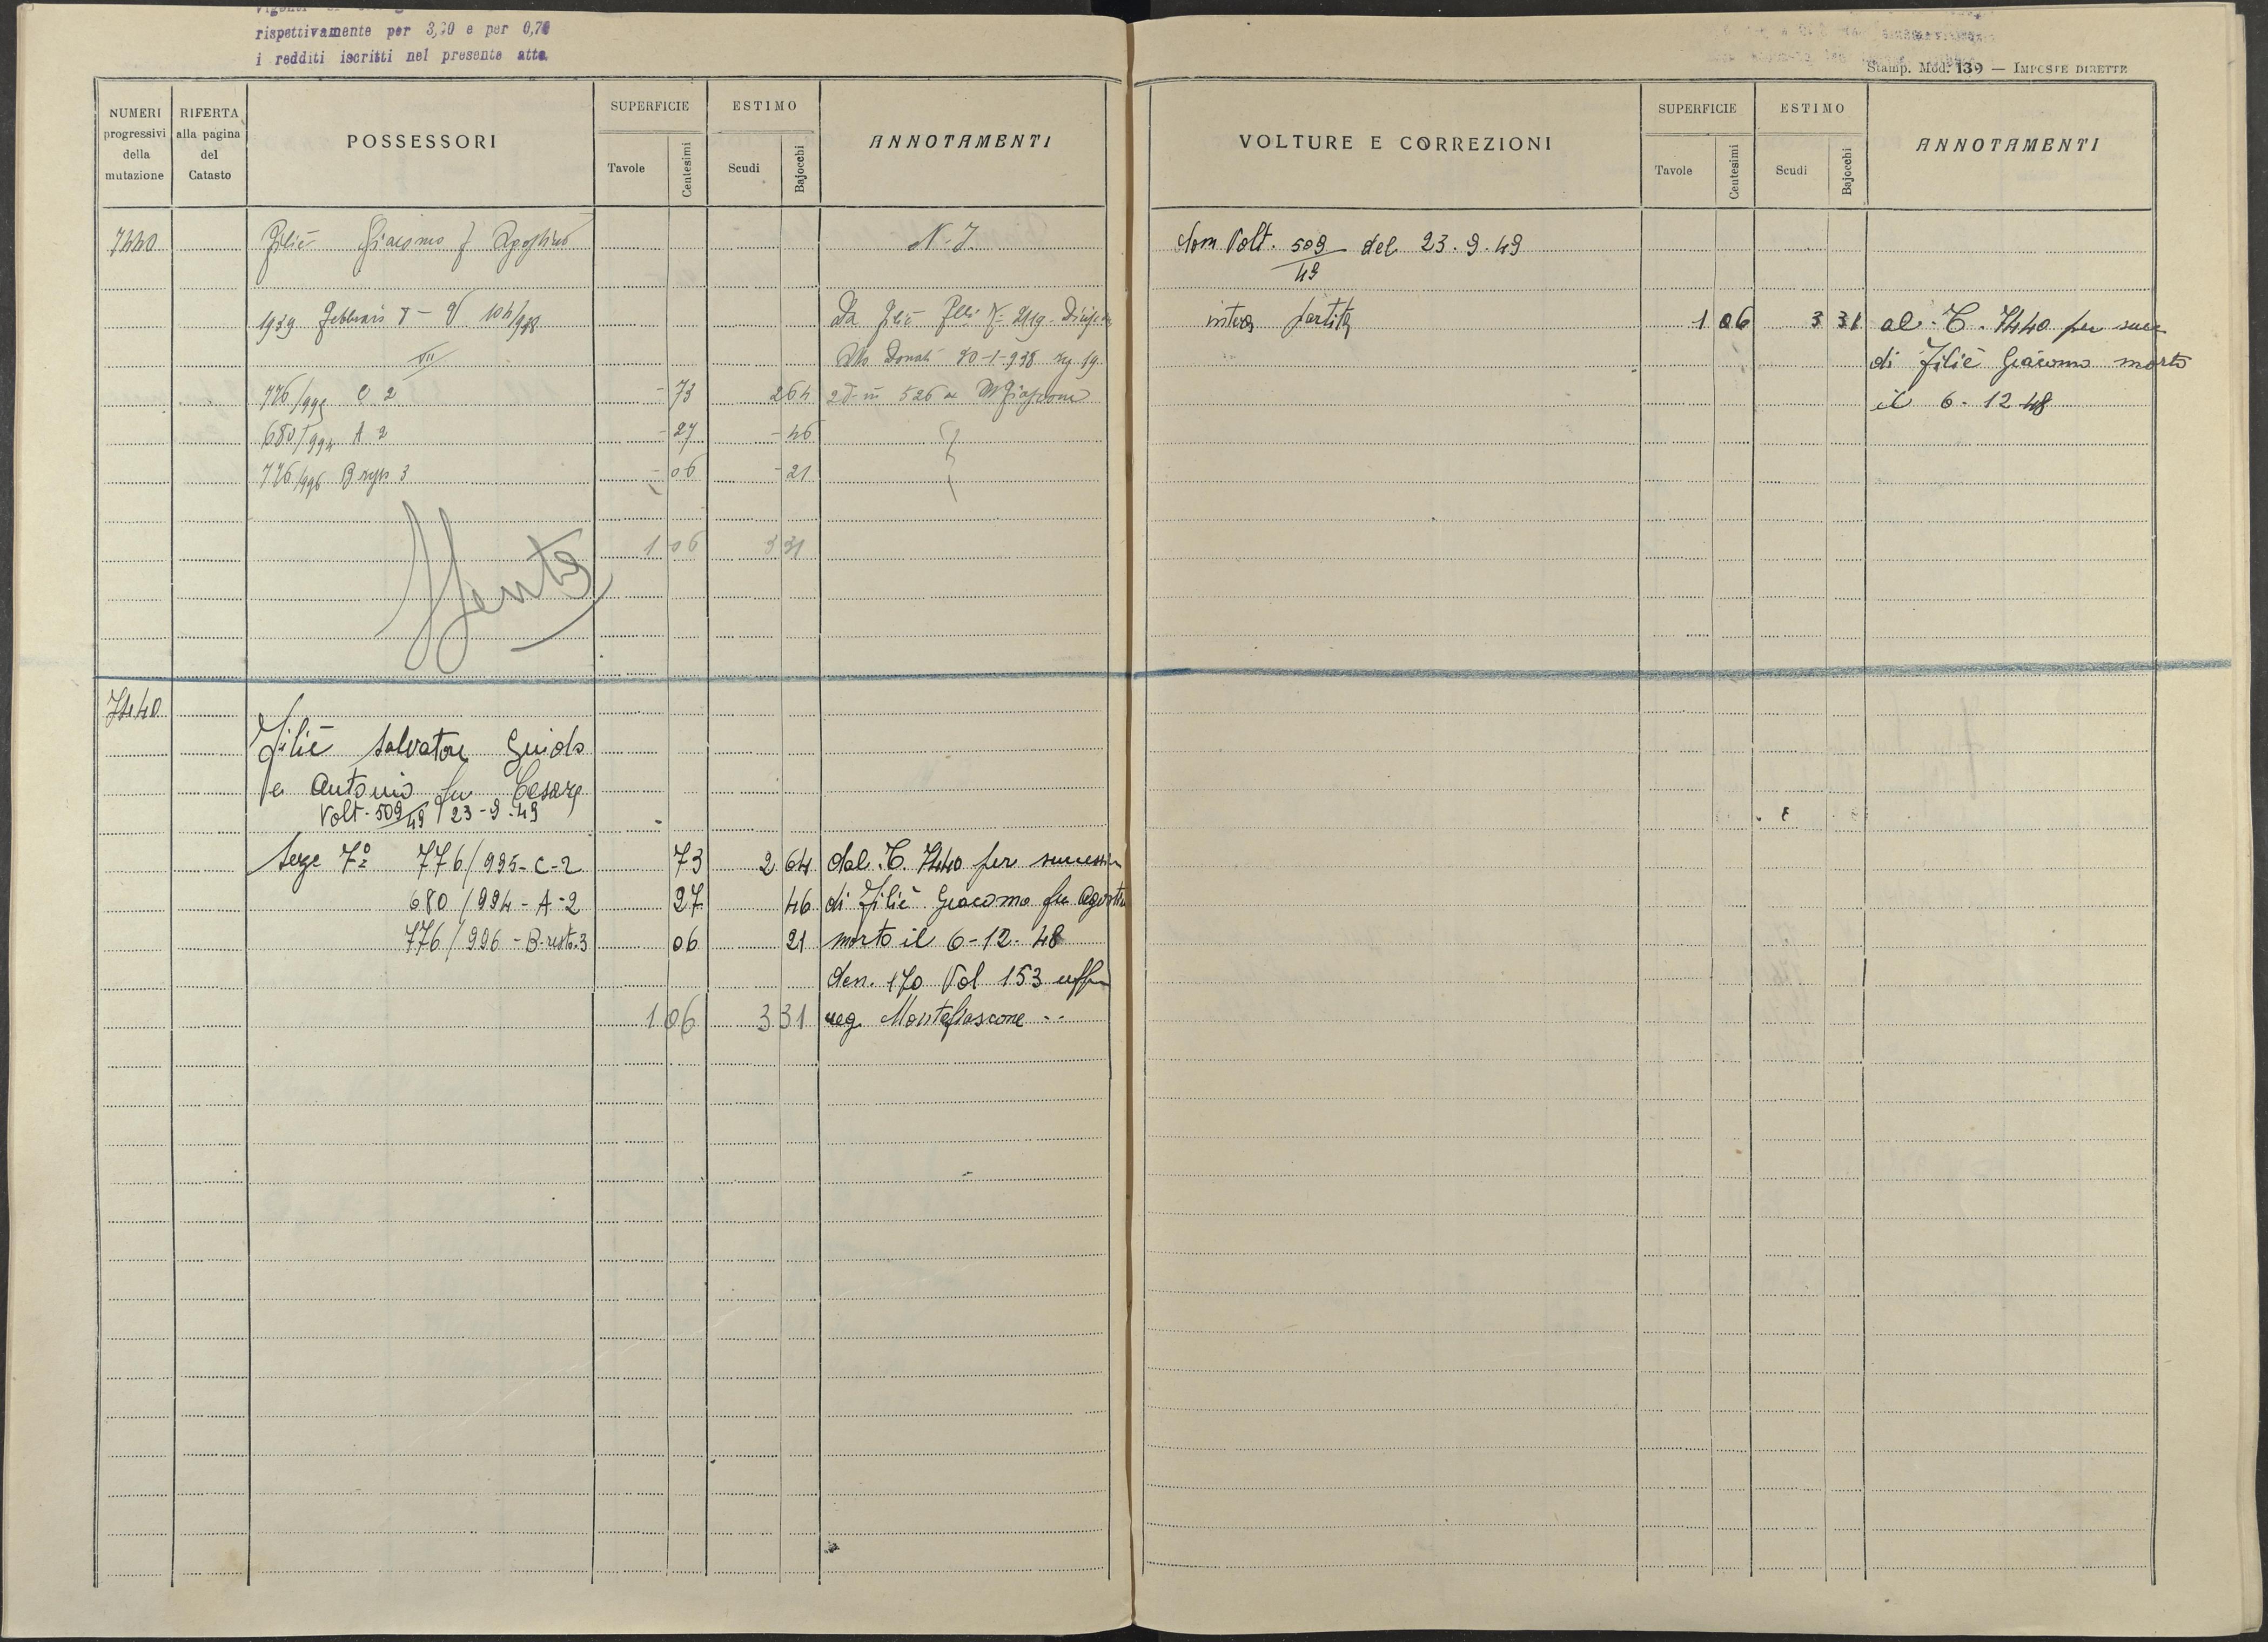 rispettivamente per 3,70 e per 0,70
i redditi iscritti nel presente atto
NUMERI progressivi della mutazione
RIFERTA alla pagina del Catasto
POSSESSORI
SUPERFICIE
Tavole
Centesimi
ESTIMO
Scudi
Bajocchi
ANNOTAMENTI
7440 Filiè Giacomo f Agostino N. I.
1939 Febbraio 8 - V 104/938 Da Filiè
VII Donati 20-1-938
776/995 C 2 - 73 2 64 526
680/994 A 2 - 27 - 46
776/996 B 3 - 06 - 21
1 06 3 31
Spenta
7440
Filiè Salvatore Guido
e Antonio fu Cesare
Volt. 509/49 23-9-49
Sez 7ª 776/995-C-2 73 2 64 dal C. 7440 per success
680/994-A-2 27 46 di Filiè Giacomo fu Agostin
776/996-B-rest.3 06 21 morto il 6-12-48
den. 170 Vol 153 uff
1 06 3 31 reg. Montefiascone
Stamp. Mod. 139 — IMPOSTE DIRETTE
VOLTURE E CORREZIONI
SUPERFICIE
Tavole
Centesimi
ESTIMO
Scudi
Bajocchi
ANNOTAMENTI
Dom Volt. 509/49 del 23.9.49
intera partita 1 06 3 31 al C. 7440 per succ
di Filiè Giacomo morto
il 6-12 48